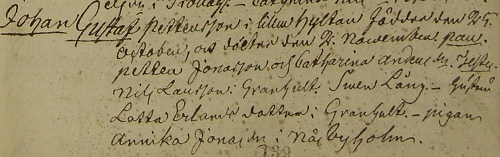 Johan Gustaf pettersson i lilla hyltan födder den 26
october, och döpter den 4 November par.
petter Jonasson och Catharina andersdr. Test.
Nils Larsson i Granhult. Swen Lång. - hustru
Lotta Erlands dotter i Granhult. - pigan
Annika Jonasdr i Nås byholm.